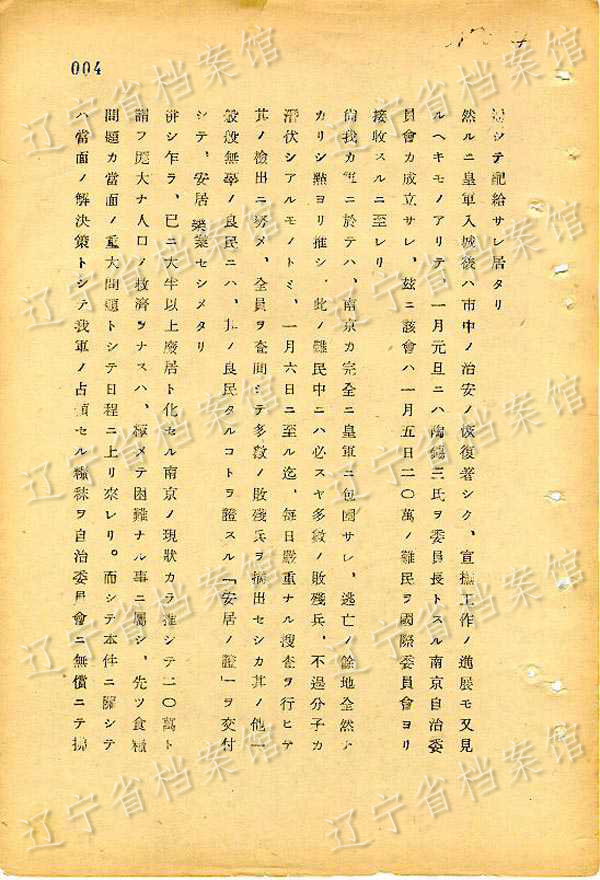 004
シテ配給サレ居タリ
然ルニ皇軍入城後ハ市中ノ治安ノ恢復著シク、宣撫工作ノ進展モ又見
ルヘキモノアリテ、一月元旦ニハ陶錫三氏ヲ委員長トスル南京自治委
員會カ成立サレ、玆ニ該會ハ一月五日二〇萬ノ難民ヲ國際委員會ヨリ
接收スルニ至レリ
尙我カ軍ニ於テハ、南京カ完全ニ皇軍ニ包圍サレ、逃亡ノ餘地全然ナ
カリシ點ヨリ推シ、此ノ難民中ニハ必スヤ多數ノ敗殘兵、不逞分子カ
潛伏シアルモノトミ、一月六日ニ至ル迄、每日嚴重ナル搜查ヲ行ヒテ
其ノ檢出ニ努メ、全員ヲ査問シテ多數ノ敗殘兵ヲ摘出セシカ其ノ他一
般無辜ノ良民ニハ、其ノ良民タルコトヲ證スル「安居ノ證」ヲ交付
シテ、安居樂業セシメタリ
併シ乍ラ、已ニ大半以上廢居ト化セル南京ノ現狀カラ推シテ二〇萬ト
謂フ厖大ナ人口ノ救濟ヲナスハ、極メテ困難ナル事ニ屬シ、先ツ食糧
問題カ當面ノ重大問題トシテ日程ニ上リ來レリ。而シテ本件ニ關シテ
ハ當面ノ解決策トシテ我軍ノ占領セル糧秣ヲ自治委員會ニ無償ニテ拂
辽宁省档案馆
辽宁省档案馆
辽宁省档案馆
辽宁省档案馆
辽宁省档案馆
辽宁省档案馆